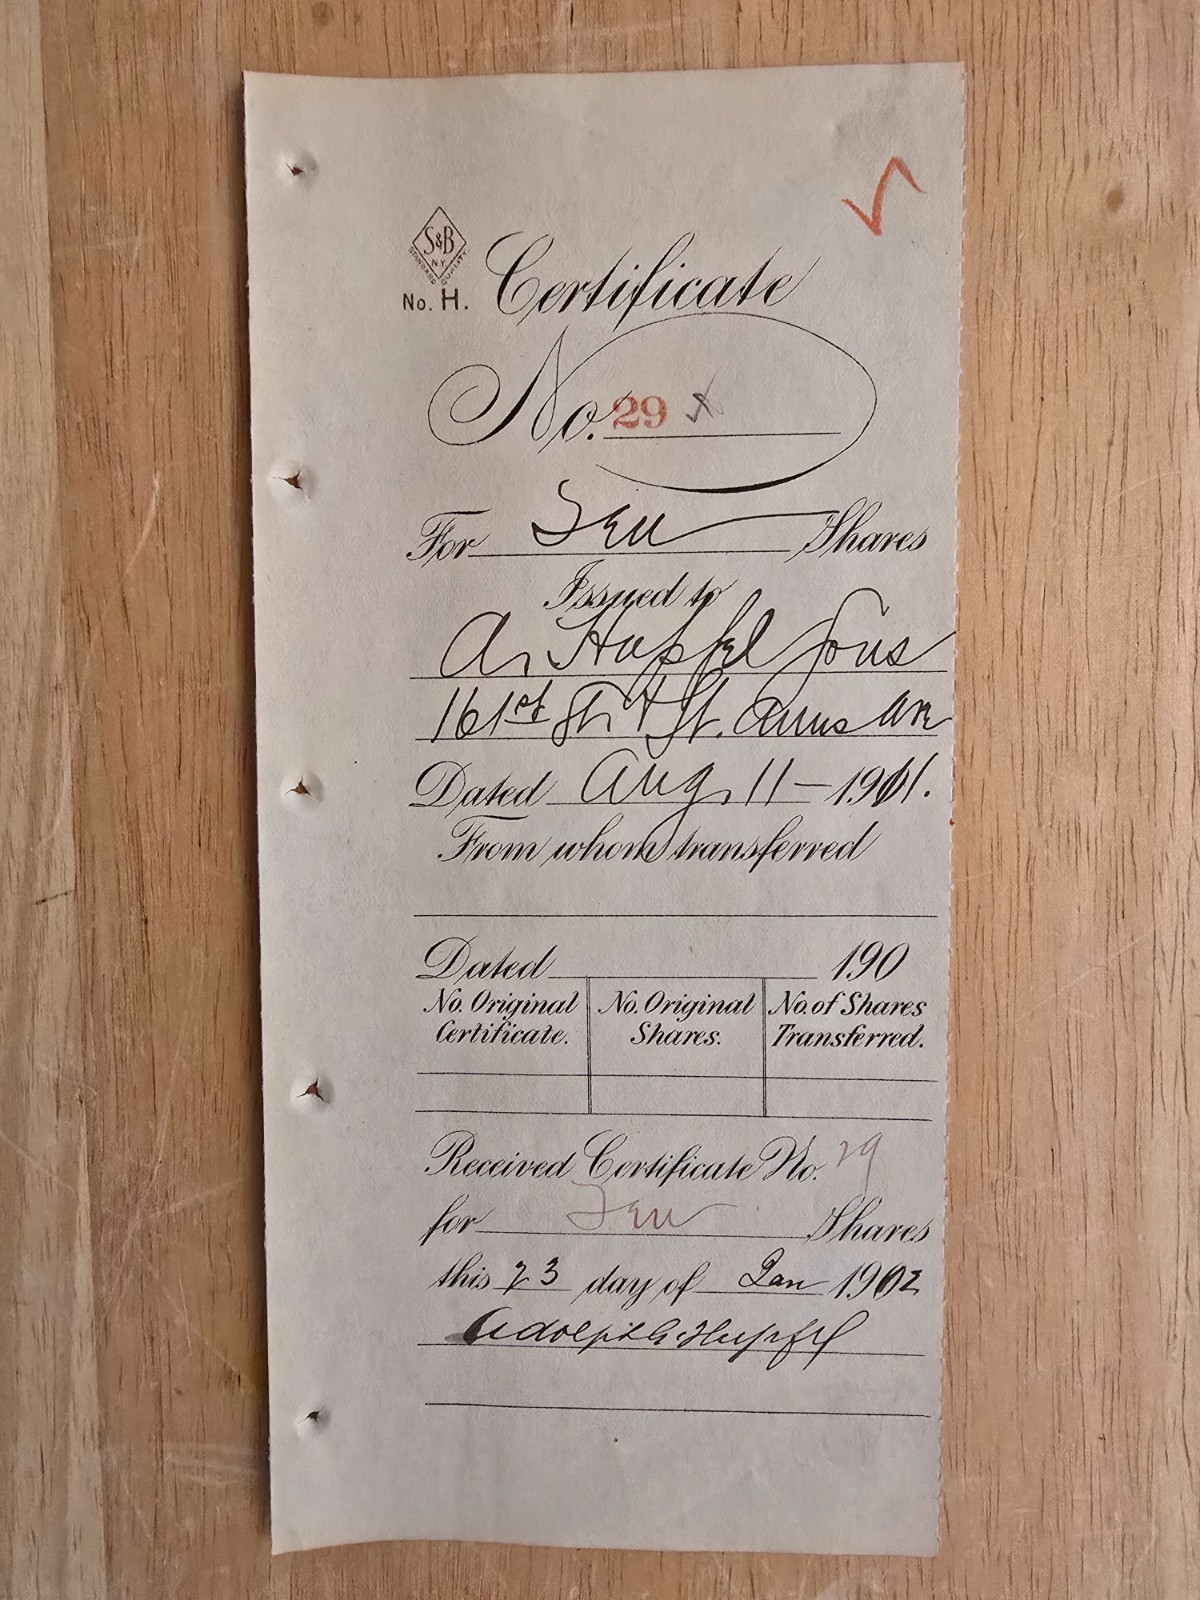 S&B
N.Y.
STANDARD QUALITY
No. H. Certificate
No. 29 x
For Ten Shares
Issued to
A. Hupfel Sons
161st St. & St. Anns Ave
Dated Aug. 11 - 1901.
From whom transferred
Dated 190
No. Original Certificate. No. Original Shares. No. of Shares Transferred.
Received Certificate No. 29
for Ten Shares
this 23 day of Jan 1902
Adolph G. Hupfel